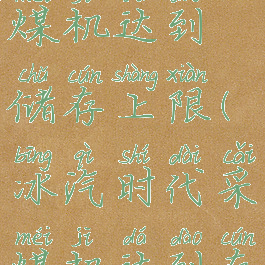 煤机达到
chǔ cún shàng xiàn
储存上限(
bīng qì shí dài cǎi
冰汽时代采
méi jī dá dào cún
煤机达到存